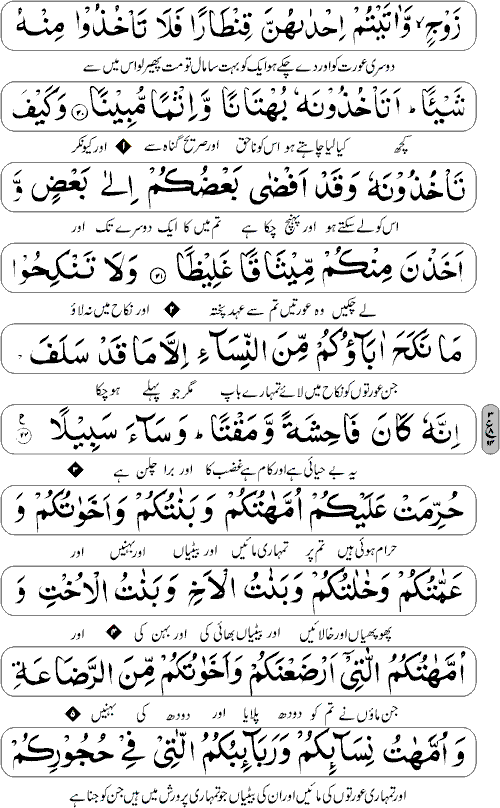 زَوْجٍ ۙ وَّاٰتَيْتُمْ اِحْدٰىهُنَّ قِنْطَارًا فَلَا تَاْخُذُوْا مِنْهُ
دوسری عورت کو اور دے چکے ہو ایک کو بہت سا مال تو مت پھیر لو اس میں سے
شَيْـًٔا ؕ اَتَاْخُذُوْنَهٗ بُهْتَانًا وَّاِثْمًا مُّبِيْنًا ﴿۲۰﴾ وَكَيْفَ
کچھ کیا لیا چاہتے ہو اس کو ناحق اور صریح گناہ سے ۱ اور کیونکر
تَاْخُذُوْنَهٗ وَقَدْ اَفْضٰى بَعْضُكُمْ اِلٰى بَعْضٍ وَّ
اس کو لے سکتے ہو اور پہنچ چکا ہے تم میں کا ایک دوسرے تک اور
اَخَذْنَ مِنْكُمْ مِّيْثَاقًا غَلِيْظًا ﴿۲۱﴾ وَلَا تَنْكِحُوْا
لے چکیں وہ عورتیں تم سے عہد پختہ ۲ اور نکاح میں نہ لاؤ
مَا نَكَحَ اٰبَآؤُكُمْ مِّنَ النِّسَآءِ اِلَّا مَا قَدْ سَلَفَ ؕ
جن عورتوں کو نکاح میں لائے تمہارے باپ مگر جو پہلے ہو چکا
اِنَّهٗ كَانَ فَاحِشَةً وَّمَقْتًا ؕ وَسَآءَ سَبِيْلًا ﴿۲۲﴾ ع
یہ بے حیائی ہے اور کام ہے غضب کا اور برا چلن ہے ۳
حُرِّمَتْ عَلَيْكُمْ اُمَّهٰتُكُمْ وَبَنٰتُكُمْ وَاَخَوٰتُكُمْ وَ
حرام ہوئی ہیں تم پر تمہاری مائیں اور بیٹیاں اور بہنیں اور
عَمّٰتُكُمْ وَخٰلٰتُكُمْ وَبَنٰتُ الْاَخِ وَبَنٰتُ الْاُخْتِ وَ
پھوپھیاں اور خالائیں اور بیٹیاں بھائی کی اور بہن کی ۴ اور
اُمَّهٰتُكُمُ الّٰتِيْۤ اَرْضَعْنَكُمْ وَاَخَوٰتُكُمْ مِّنَ الرَّضَاعَةِ
جن ماؤں نے تم کو دودھ پلایا اور دودھ کی بہنیں ۵
وَاُمَّهٰتُ نِسَآئِكُمْ وَرَبَآئِبُكُمُ الّٰتِيْ فِيْ حُجُوْرِكُمْ
اور تمہاری عورتوں کی مائیں اور ان کی بیٹیاں جو تمہاری پرورش میں ہیں جن کو جنا ہے